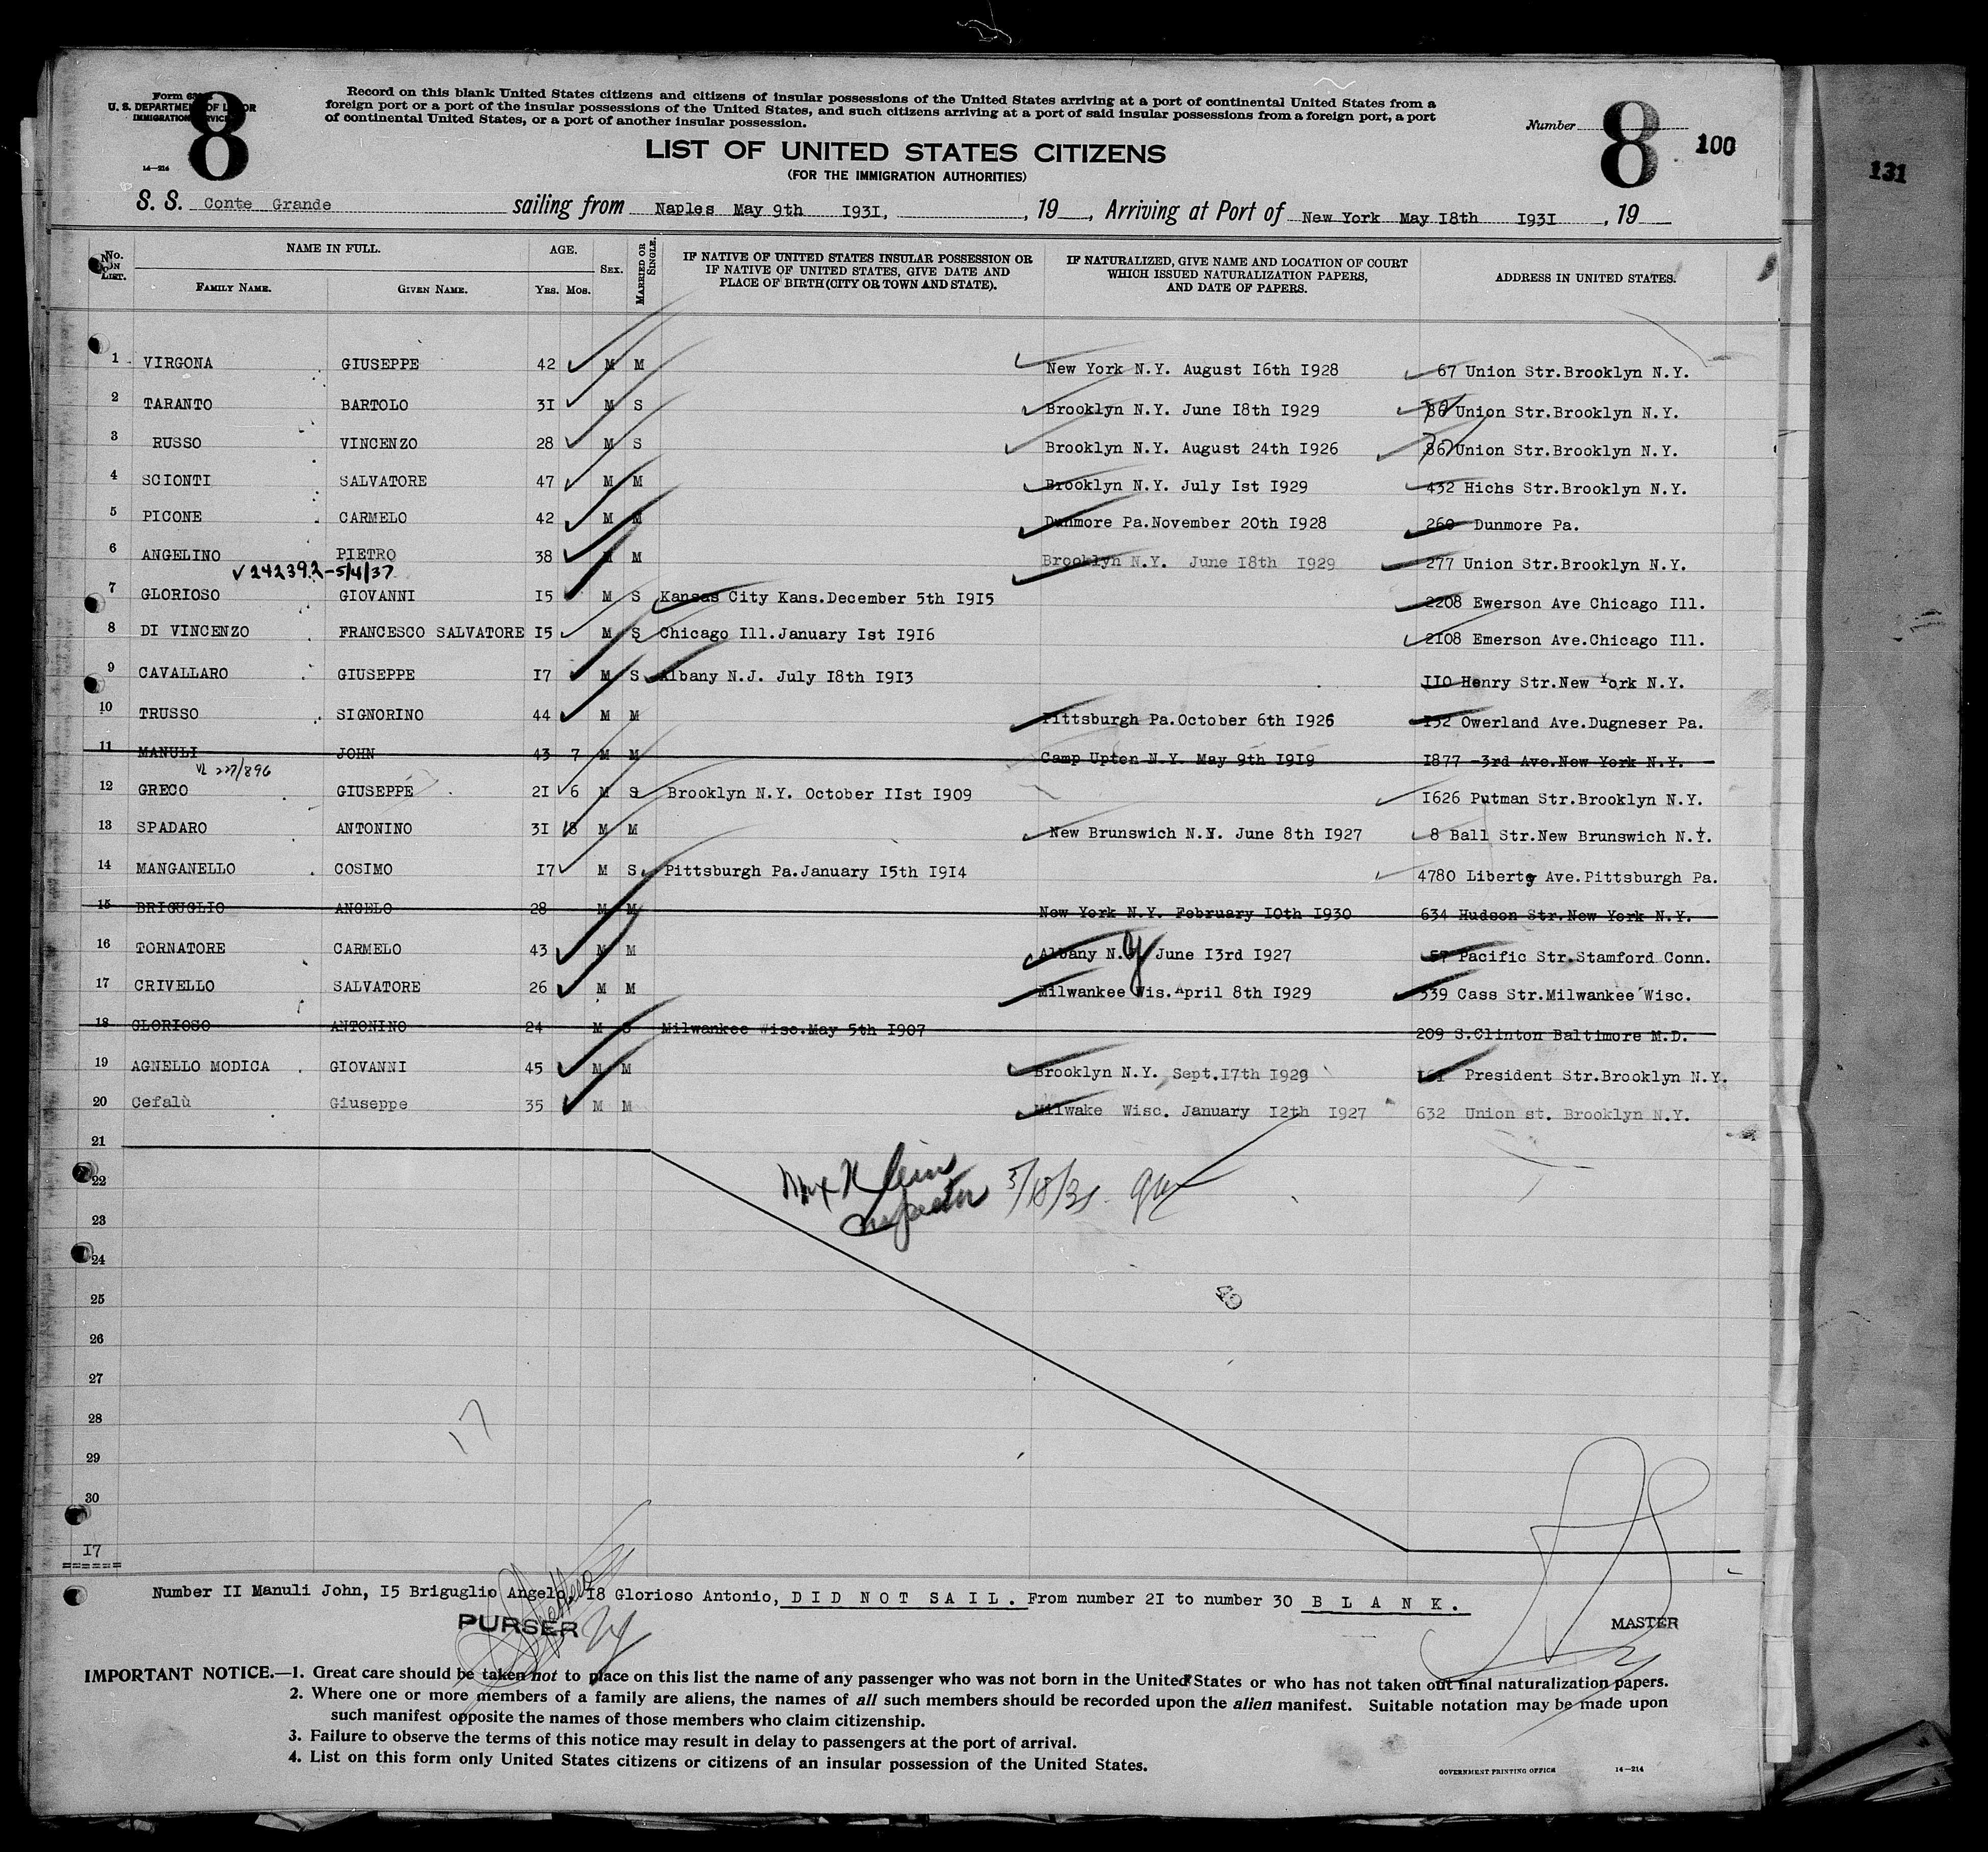 Form 6
U. S. DEPARTMENT OF LABOR
IMMIGRATION SERVICE
14—214
8
Record on this blank United States citizens and citizens of insular possessions of the United States arriving at a port of continental United States from a
foreign port or a port of the insular possessions of the United States, and such citizens arriving at a port of said insular possessions from a foreign port, a port
of continental United States, or a port of another insular possession.
Number 8 100
131
LIST OF UNITED STATES CITIZENS
(FOR THE IMMIGRATION AUTHORITIES)
S. S. Conte Grande sailing from Naples May 9th I93I, , 19 , Arriving at Port of New York May I8th I93I , 19
No. ON LIST. NAME IN FULL. FAMILY NAME. GIVEN NAME. AGE. YRS. MOS. SEX. MARRIED OR SINGLE. IF NATIVE OF UNITED STATES INSULAR POSSESSION OR IF NATIVE OF UNITED STATES, GIVE DATE AND PLACE OF BIRTH (CITY OR TOWN AND STATE). IF NATURALIZED, GIVE NAME AND LOCATION OF COURT WHICH ISSUED NATURALIZATION PAPERS, AND DATE OF PAPERS. ADDRESS IN UNITED STATES.
1 VIRGONA GIUSEPPE 42 M M New York N.Y. August I6th I928 67 Union Str.Brooklyn N.Y.
2 TARANTO BARTOLO 3I M S Brooklyn N.Y. June I8th I929 Union Str.Brooklyn N.Y.
3 RUSSO VINCENZO 28 M S Brooklyn N.Y. August 24th I926 Union Str.Brooklyn N.Y.
4 SCIONTI SALVATORE 47 M M Brooklyn N.Y. July Ist I929 432 Hichs Str.Brooklyn N.Y.
5 PICONE CARMELO 42 M M Dunmore Pa.November 20th I928 260 Dunmore Pa.
6 ANGELINO PIETRO 38 M M Brooklyn N.Y. June I8th I929 277 Union Str.Brooklyn N.Y.
V 242392-5/4/37
7 GLORIOSO GIOVANNI I5 M S Kansas City Kans.December 5th I9I5 2208 Ewerson Ave Chicago Ill.
8 DI VINCENZO FRANCESCO SALVATORE I5 M S Chicago Ill.January Ist I9I6 2I08 Emerson Ave.Chicago Ill.
9 CAVALLARO GIUSEPPE I7 M S Albany N.J. July I8th I9I3 II0 Henry Str.New York N.Y.
10 TRUSSO SIGNORINO 44 M M Pittsburgh Pa.October 6th I926 I32 Owerland Ave.Dugneser Pa.
11 MANULI JOHN 43 7 M M Camp Upten N.Y. May 9th I9I9 I877 -3rd Ave.New York N.Y.
227/896
12 GRECO GIUSEPPE 2I 6 M S Brooklyn N.Y. October IIst I909 I626 Putman Str.Brooklyn N.Y.
13 SPADARO ANTONINO 3I 8 M M New Brunswich N.Y. June 8th I927 8 Ball Str.New Brunswich N.Y.
14 MANGANELLO COSIMO I7 M S Pittsburgh Pa.January I5th I9I4 4780 Liberty Ave.Pittsburgh Pa.
15 BRIGUGLIO ANGELO 28 M M New York N.Y. February I0th I930 634 Hudson Str.New York N.Y.
16 TORNATORE CARMELO 43 M M Albany N.Y June I3rd I927 57 Pacific Str.Stamford Conn.
17 CRIVELLO SALVATORE 26 M M Milwankee Wis.April 8th I929 539 Cass Str.Milwankee Wisc.
18 GLORIOSO ANTONINO 24 M S Milwankee Wisc.May 5th I907 209 S.Clinton Baltimore M.D.
19 AGNELLO MODICA GIOVANNI 45 M M Brooklyn N.Y. Sept.I7th I929 President Str.Brooklyn N.Y.
20 Cefalù Giuseppe 35 M M Milwake Wisc. January I2th I927 632 Union st. Brooklyn N.Y.
21
22
Inspector 5/18/31
23
24
25
26
27
28
17
29
30
I7
Number II Manuli John, I5 Briguglio Angelo, I8 Glorioso Antonio, DID NOT SAIL. From number 2I to number 30 BLANK.
PURSER
MASTER
IMPORTANT NOTICE.—1. Great care should be taken not to place on this list the name of any passenger who was not born in the United States or who has not taken out final naturalization papers.
2. Where one or more members of a family are aliens, the names of all such members should be recorded upon the alien manifest. Suitable notation may be made upon
such manifest opposite the names of those members who claim citizenship.
3. Failure to observe the terms of this notice may result in delay to passengers at the port of arrival.
4. List on this form only United States citizens or citizens of an insular possession of the United States.
GOVERNMENT PRINTING OFFICE 14—214